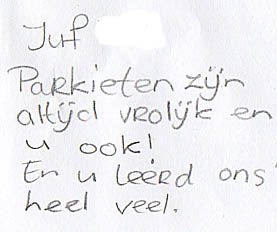 Juf
Parkieten zijn
altijd vrolijk en
u ook!
En u leerd ons
heel veel.